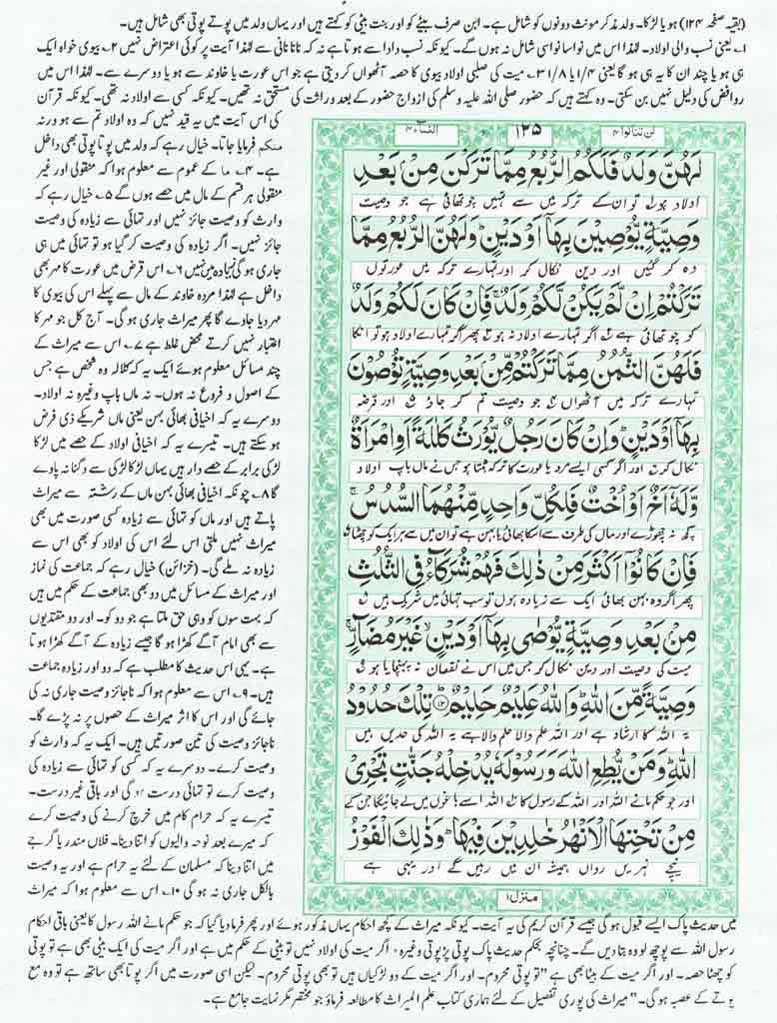 (بقیہ صفحہ ۱۲۴) ہو یا لڑکا۔ ولد مذکر مونث دونوں کو شامل ہے۔ ابن صرف بیٹے کو اور بنت بیٹی کو کہتے ہیں اور یہاں ولد میں پوتے پوتی بھی شامل ہیں۔
۱۔ یعنی نسب والی اولاد۔ لہٰذا اس میں نواسا نواسی شامل نہ ہوں گے۔ کیونکہ نسب دادا سے ہوتا ہے نہ کہ نانا نانی سے لہٰذا آیت پر کوئی اعتراض نہیں ۲۔ بیوی خواہ ایک
ہی ہو یا چند ان کا یہ ہی ہو گا یعنی ۱/۴ یا ۱/۸ ۳۔ میت کی صلبی اولاد بیوی کا حصہ آٹھواں کر دیتی ہے جو اس عورت یا خاوند سے ہو یا دوسرے سے۔ لہٰذا اس میں
روافض کی دلیل نہیں بن سکتی۔ وہ کہتے ہیں کہ حضور صلی اللہ علیہ وسلم کی ازواج حضور کے بعد وراثت کی مستحق نہ تھیں۔ کیونکہ کسی سے اولاد نہ تھی۔ کیونکہ قرآن
کی اس آیت میں یہ قید نہیں کہ وہ اولاد تم سے ہو ورنہ
منکم فرمایا جاتا۔ خیال رہے کہ ولد میں پوتا پوتی بھی داخل
ہے۔ ۴۔ ما کے عموم سے معلوم ہوا کہ منقولی اور غیر
منقولی ہر قسم کے مال میں حصے ہوں گے ۵۔ خیال رہے کہ
وارث کو وصیت جائز نہیں اور تہائی سے زیادہ کی وصیت
جائز نہیں۔ اگر زیادہ کی وصیت کر گیا ہو تو تہائی میں ہی
جاری ہو گی زیادہ میں نہیں ۶۔ اس قرض میں عورت کا مہر بھی
داخل ہے لہٰذا مردہ خاوند کے مال سے پہلے اس کی بیوی کا
مہر دیا جاوے گا پھر میراث جاری ہو گی۔ آج کل جو مہر کا
اعتبار نہیں کرتے محض غلط ہے ۷۔ اس سے میراث کے
چند مسائل معلوم ہوئے ایک یہ کہ کلالہ وہ شخص ہے جس
کے اصول و فروع نہ ہوں۔ نہ ماں باپ وغیرہ نہ اولاد۔
دوسرے یہ کہ اخیافی بھائی بہن یعنی ماں شریکے ذی فرض
ہو سکتے ہیں۔ تیسرے یہ کہ اخیافی اولاد کے حصے میں لڑکا
لڑکی برابر کے حصے دار ہیں یہاں لڑکا لڑکی سے دگنا نہ پاوے
گا ۸۔ چونکہ اخیافی بھائی بہن ماں کے رشتہ سے میراث
پاتے ہیں اور ماں کو تہائی سے زیادہ کسی صورت میں بھی
میراث نہیں ملتی اس لئے اس کی اولاد کو بھی اس سے
زیادہ نہ ملے گی۔ (خزائن) خیال رہے کہ جماعت کی نماز
اور میراث کے مسائل میں دو بھی جماعت کے حکم میں ہیں
کہ بہت سوں کو وہی حق ملتا ہے جو دو کو۔ اور دو مقتدیوں
سے بھی امام آگے کھڑا ہو گا جیسے زیادہ کے آگے کھڑا ہوتا
ہے۔ یہی اس حدیث کا مطلب ہے کہ دو اور زیادہ جماعت
ہیں۔ ۹۔ اس سے معلوم ہوا کہ ناجائز وصیت جاری نہ کی
جائے گی اور اس کا اثر میراث کے حصوں پر نہ پڑے گا۔
ناجائز وصیت کی تین صورتیں ہیں۔ ایک یہ کہ وارث کو
وصیت کرے۔ دوسرے یہ کہ کسی کو تہائی سے زیادہ کی
وصیت کرے تو تہائی درست ہو گی اور باقی غیر درست۔
تیسرے یہ کہ حرام کام میں خرچ کرنے کی وصیت کرے
کہ میرے بعد نوحہ والیوں کو اتنا دینا۔ فلاں مندر یا گرجے
میں اتنا دینا کہ مسلمان کے لئے یہ حرام ہے اور یہ وصیت
بالکل جاری نہ ہو گی ۱۰۔ اس سے معلوم ہوا کہ میراث
لن تنالوا۴
۱۲۵
النساء۴
لَهُنَّ وَلَدٌ فَلَكُمُ الرُّبُعُ مِمَّا تَرَكْنَ مِنْ بَعْدِ
اولاد ہو لہ تو ان کے ترکہ میں سے تمہیں چوتھائی ہے جو وصیت
وَصِيَّةٍ يُّوْصِيْنَ بِهَآ اَوْ دَيْنٍ ؕ وَلَهُنَّ الرُّبُعُ مِمَّا
وہ کر گئیں اور دین نکال کر اور تمہارے ترکہ میں عورتوں
تَرَكْتُمْ اِنْ لَّمْ يَكُنْ لَّكُمْ وَلَدٌ ۚ فَاِنْ كَانَ لَكُمْ وَلَدٌ
کو چوتھائی ہے اگر تمہارے اولاد نہ ہو پھر اگر تمہارے اولاد ہو تو انکا
فَلَهُنَّ الثُّمُنُ مِمَّا تَرَكْتُمْ مِّنْۢ بَعْدِ وَصِيَّةٍ تُوْصُوْنَ
تمہارے ترکہ میں آٹھواں جو وصیت تم کر جاؤ اور قرضہ
بِهَآ اَوْ دَيْنٍ ؕ وَاِنْ كَانَ رَجُلٌ يُّوْرَثُ كَلٰلَةً اَوِ امْرَاَةٌ
نکال کر اور اگر کسی ایسے مرد یا عورت کا ترکہ بٹتا ہو جس نے ماں باپ اولاد
وَّلَهٗٓ اَخٌ اَوْ اُخْتٌ فَلِكُلِّ وَاحِدٍ مِّنْهُمَا السُّدُسُ ۚ
کچھ نہ چھوڑے اور ماں کی طرف سے اسکا بھائی یا بہن ہے تو ان میں سے ہر ایک کو چھٹا
فَاِنْ كَانُوْٓا اَكْثَرَ مِنْ ذٰلِكَ فَهُمْ شُرَكَآءُ فِى الثُّلُثِ
پھر اگر وہ بہن بھائی ایک سے زیادہ ہوں تو سب تہائی میں شریک ہیں
مِنْۢ بَعْدِ وَصِيَّةٍ يُّوْصٰى بِهَآ اَوْ دَيْنٍ ۙ غَيْرَ مُضَآرٍّ ۚ
میت کی وصیت اور دین نکال کر جس میں اس نے نقصان نہ پہنچایا ہو
وَصِيَّةً مِّنَ اللّٰهِ ؕ وَاللّٰهُ عَلِيْمٌ حَلِيْمٌ ؕ۝۱۲ تِلْكَ حُدُوْدُ
یہ اللہ کا ارشاد ہے اور اللہ علم والا حلم والا ہے یہ اللہ کی حدیں ہیں
اللّٰهِ ؕ وَمَنْ يُّطِعِ اللّٰهَ وَرَسُوْلَهٗ يُدْخِلْهُ جَنّٰتٍ تَجْرِىْ
اور جو حکم مانے اللہ اور اللہ کے رسول کا اللہ اسے باغوں میں لے جائیگا جن کے
مِنْ تَحْتِهَا الْاَنْهٰرُ خٰلِدِيْنَ فِيْهَا ؕ وَذٰلِكَ الْفَوْزُ
نیچے نہریں رواں ہمیشہ ان میں رہیں گے اور یہی ہے
منزل۱
میں حدیث پاک ایسے قبول ہو گی جیسے قرآن کریم کی یہ آیت۔ کیونکہ میراث کے کچھ احکام یہاں مذکور ہوئے اور پھر فرما دیا گیا کہ جو حکم مانے اللہ رسول کا یعنی باقی احکام
رسول اللہ سے پوچھ لو وہ بتا دیں گے۔ چنانچہ بحکم حدیث پاک پوتی پڑپوتی وغیرہ، اگر میت کی اولاد نہیں تو بیٹی کے حکم میں ہے اور اگر میت کی ایک بیٹی بھی ہے تو پوتی
کو چھٹا حصہ۔ اور اگر میت کے بیٹا بھی ہے "تو پوتی محروم۔ اور اگر میت کے دو لڑکیاں ہیں تو بھی پوتی محروم۔ لیکن اسی صورت میں اگر پوتا بھی ساتھ ہے تو وہ مع
پوتے کے عصبہ ہو گی۔" میراث کی پوری تفصیل کے لئے ہماری کتاب علم المیراث کا مطالعہ فرماؤ جو مختصر مگر نہایت جامع ہے۔